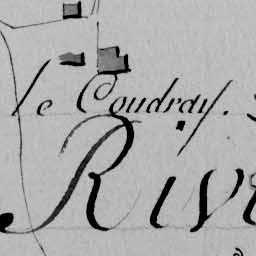 le Coudray.
Rivi